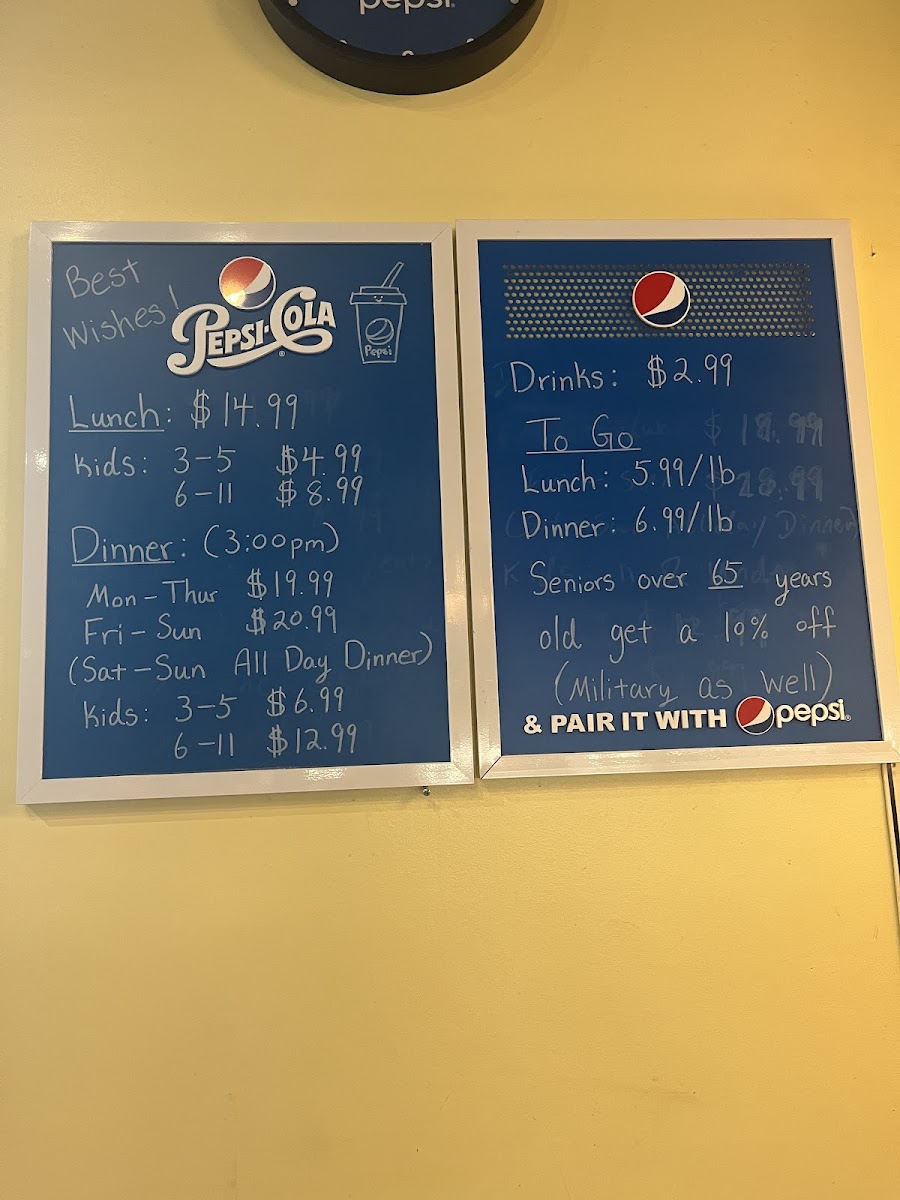 pepsi
Best
Wishes!
PEPSI-COLA
Pepsi
Lunch: $14.99
Kids: 3-5 $4.99
6-11 $8.99
Dinner: (3:00pm)
Mon-Thur $19.99
Fri-Sun $20.99
(Sat-Sun All Day Dinner)
Kids: 3-5 $6.99
6-11 $12.99
Drinks: $2.99
To Go
Lunch: 5.99/lb
Dinner: 6.99/lb
Seniors over 65 years
old get a 10% off
(Military as well)
& PAIR IT WITH pepsi